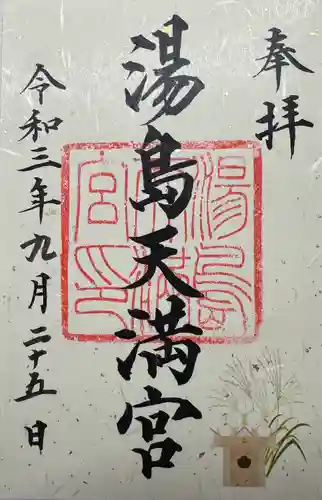 奉拝
湯島天満宮
令和三年九月二十五日
湯島天満宮印